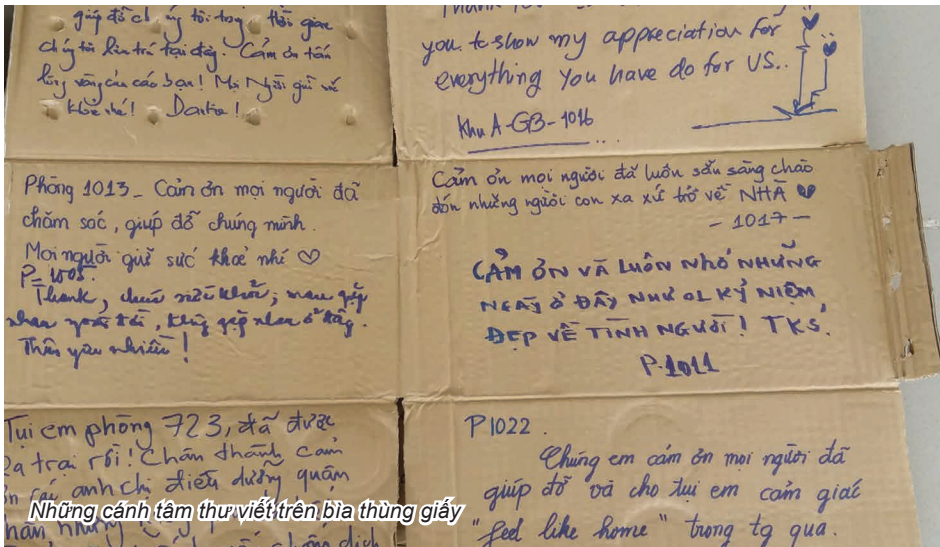 giúp đỡ ch úng tôi trong thời gian
chúng tôi lưu trú tại đây. Cảm ơn tấm
lòng vàng của các bạn! Mọi Người giữ sức
khỏe nhé!
you to show my appreciation for
everything You have do for US..
Khu A-GB-1016
Phòng 1013_ Cảm ơn mọi người đã
chăm sóc, giúp đỡ chúng mình.
Mọi người giữ sức khoẻ nhí ♡
P=1005.
Thank, chúc
nhau ngoài
Thân yêu nhiều!
Cảm ơn mọi người đã luôn sẵn sàng chào
đón những người con xa xứ trở về NHÀ ♥
- 1017 -
CẢM ƠN VÀ LUÔN NHỚ NHỮNG
NGÀY Ở ĐÂY NHƯ 01 KỶ NIỆM
ĐẸP VỀ TÌNH NGƯỜI! TKS.
P.1011
Tụi em phòng 723, đã được
ra trại rồi! Chân thành cảm
ơn các anh chị điều dưỡng quân
P1022.
Chúng em cám ơn mọi người đã
giúp đỡ và cho tụi em cảm giác
"feel like home" trong tg qua.
Những cánh tâm thư viết trên bìa thùng giấy